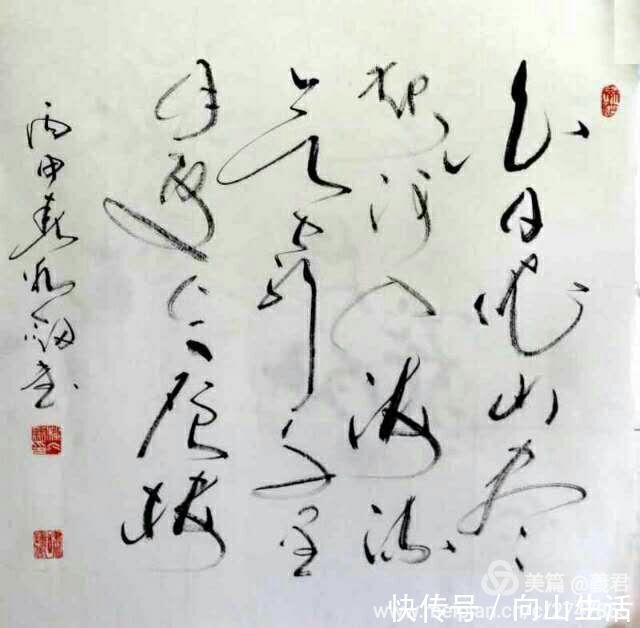 白日依山尽
黄河入海流
欲窮千里
目更上一层楼
丙申春 书
美篇 @義君
快传号 / 向山生活